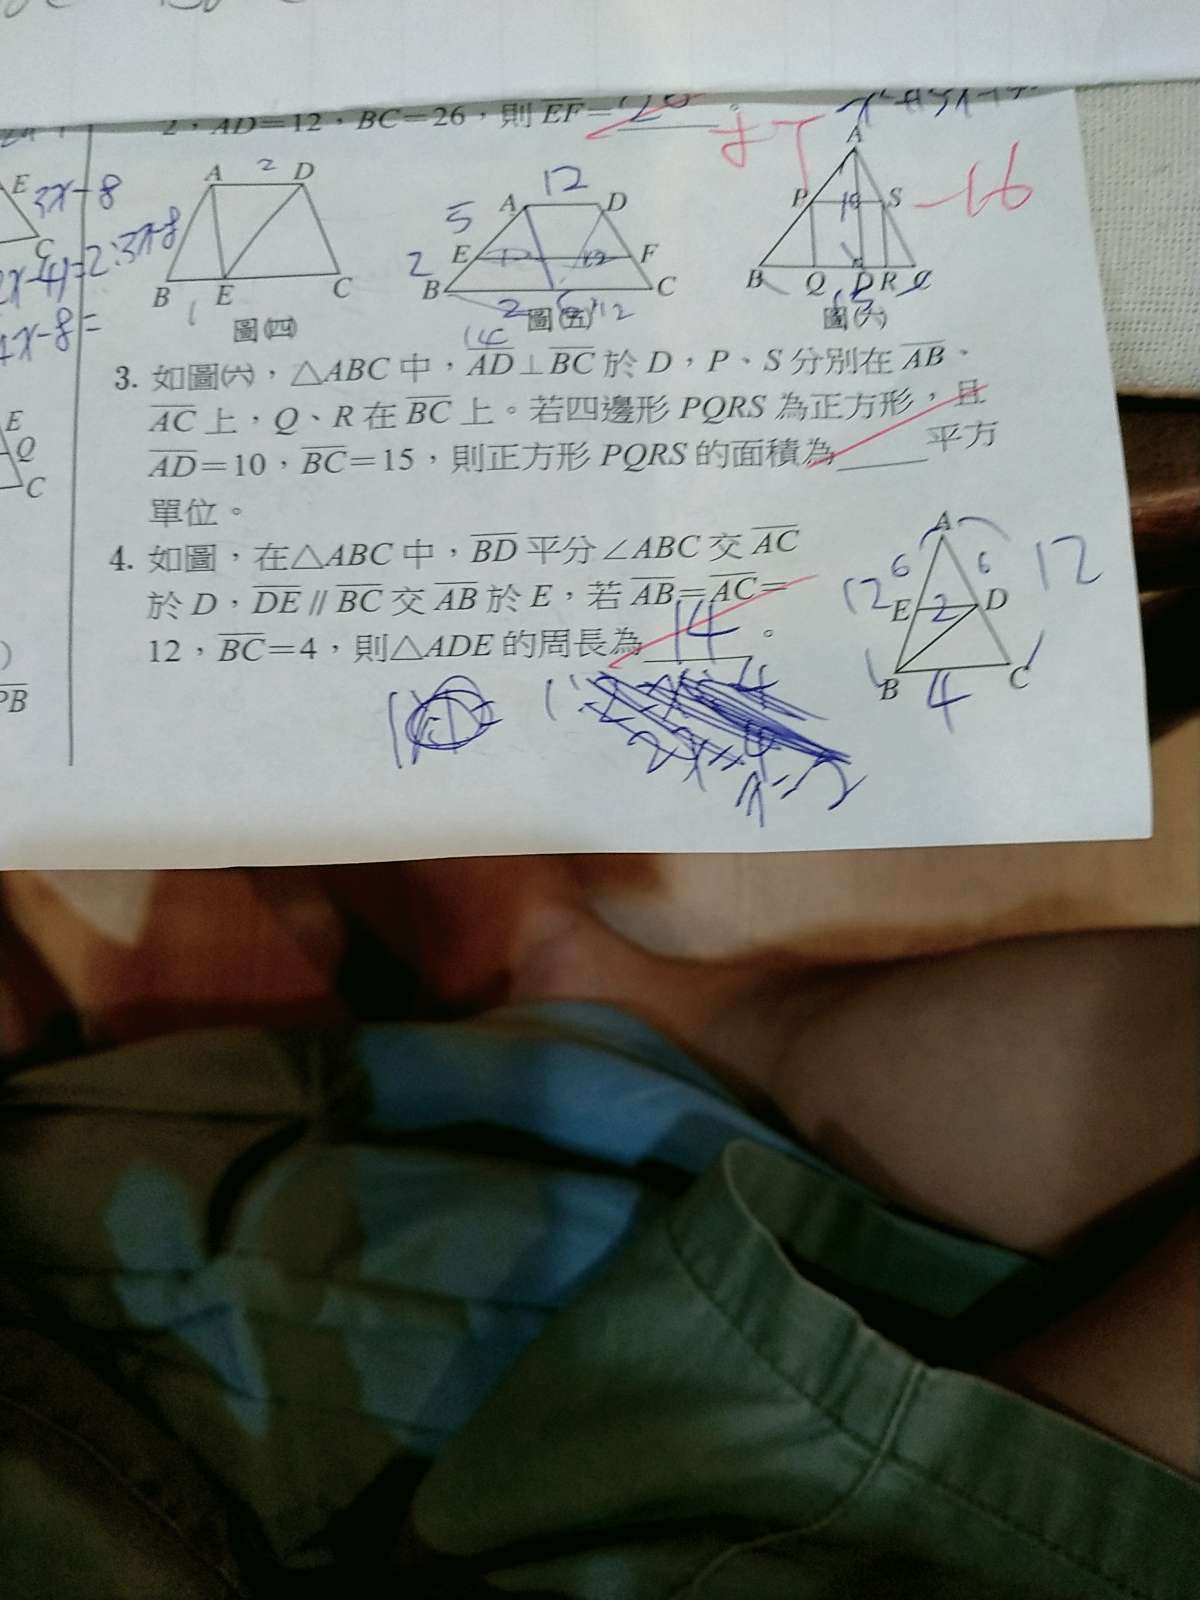 2，AD=12，BC=26，則EF=
20
-16
E
3x-8
C
2x-4)=2:3x-8
4x-8=
E
Q
C
PB
A 2 D
B E C
圖(四)
12
5 A D
2 E F
B C
2 12
14
圖(五)
A
P S
10
B Q D R C
圖(六)
3. 如圖(六)，△ABC中，AD⊥BC於D，P、S分別在AB、
AC上，Q、R在BC上。若四邊形PQRS為正方形，且
AD=10，BC=15，則正方形PQRS的面積為____平方
單位。
4. 如圖，在△ABC中，BD平分∠ABC交AC
於D，DE//BC交AB於E，若AB=AC=
12，BC=4，則△ADE的周長為 14 。
A
12 6 6 12
E 2 D
B 4 C
2x=4
x=2